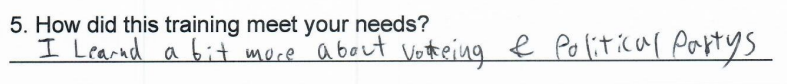 5. How did this training meet your needs?
I Learnd a bit more about Voteing & Political Partys